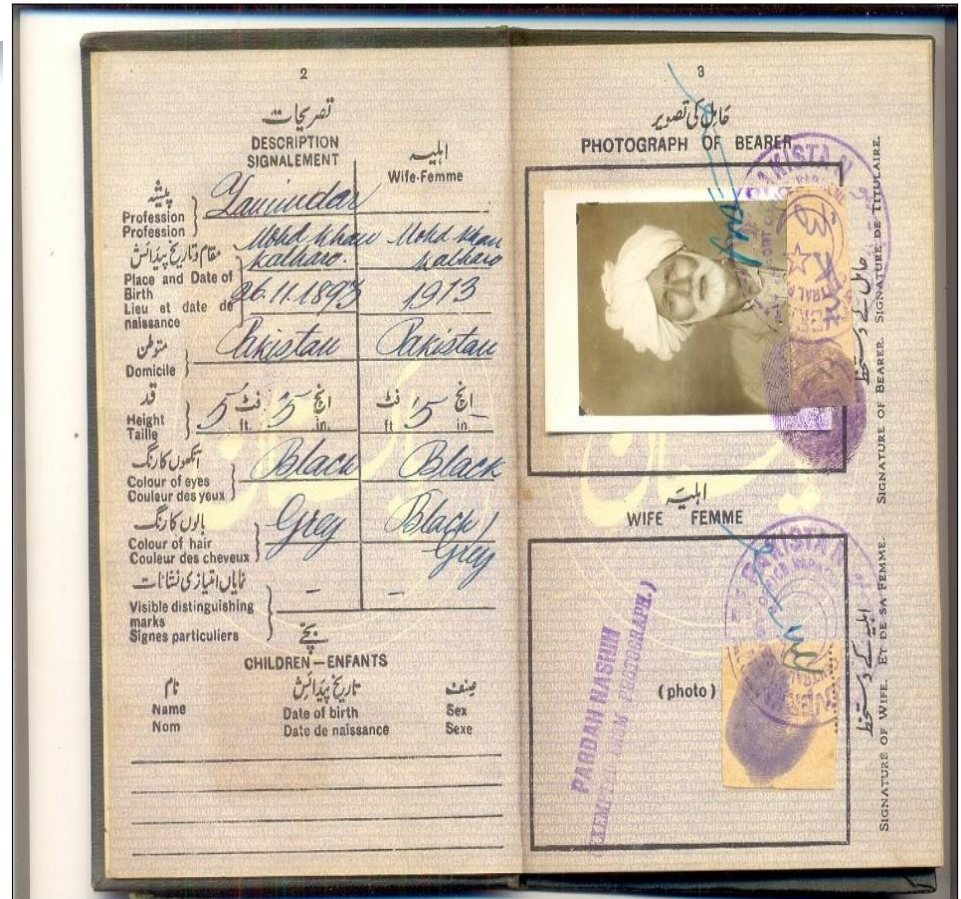 2
تصریحات
DESCRIPTION
SIGNALEMENT
اہلیہ
Wife-Femme
پیشہ
Profession
Profession
Zamindar
مقام و تاریخ پیدائش
Place and Date of
Birth
Lieu et date de
naissance
Mohd Khan Mohd Khan
Kalharo. Kalharo
26.11.1893 1913
متوطن
Domicile
Pakistan Pakistan
قد
Height
Taille
5 فٹ 5 انچ فٹ 5 انچ
ft. in. ft in
آنکھوں کا رنگ
Colour of eyes
Couleur des yeux
Black Black
بالوں کا رنگ
Colour of hair
Couleur des cheveux
Grey Black/
Grey
نمایاں امتیازی نشانات
Visible distinguishing
marks
Signes particuliers
- -
بچے
CHILDREN—ENFANTS
نام تاریخ پیدائش صنف
Name Date of birth Sex
Nom Date de naissance Sexe
3
حامل کی تصویر
PHOTOGRAPH OF BEARER
PAKISTAN
اہلیہ
WIFE FEMME
PAKISTAN
PARDAH NASHIN
(EXEMPTED FROM PHOTOGRAPH.)
(photo)
حامل کے دستخط
SIGNATURE OF BEARER. SIGNATURE DE TITULAIRE.
اہلیہ کے دستخط
SIGNATURE OF WIFE. ET DE SA FEMME.